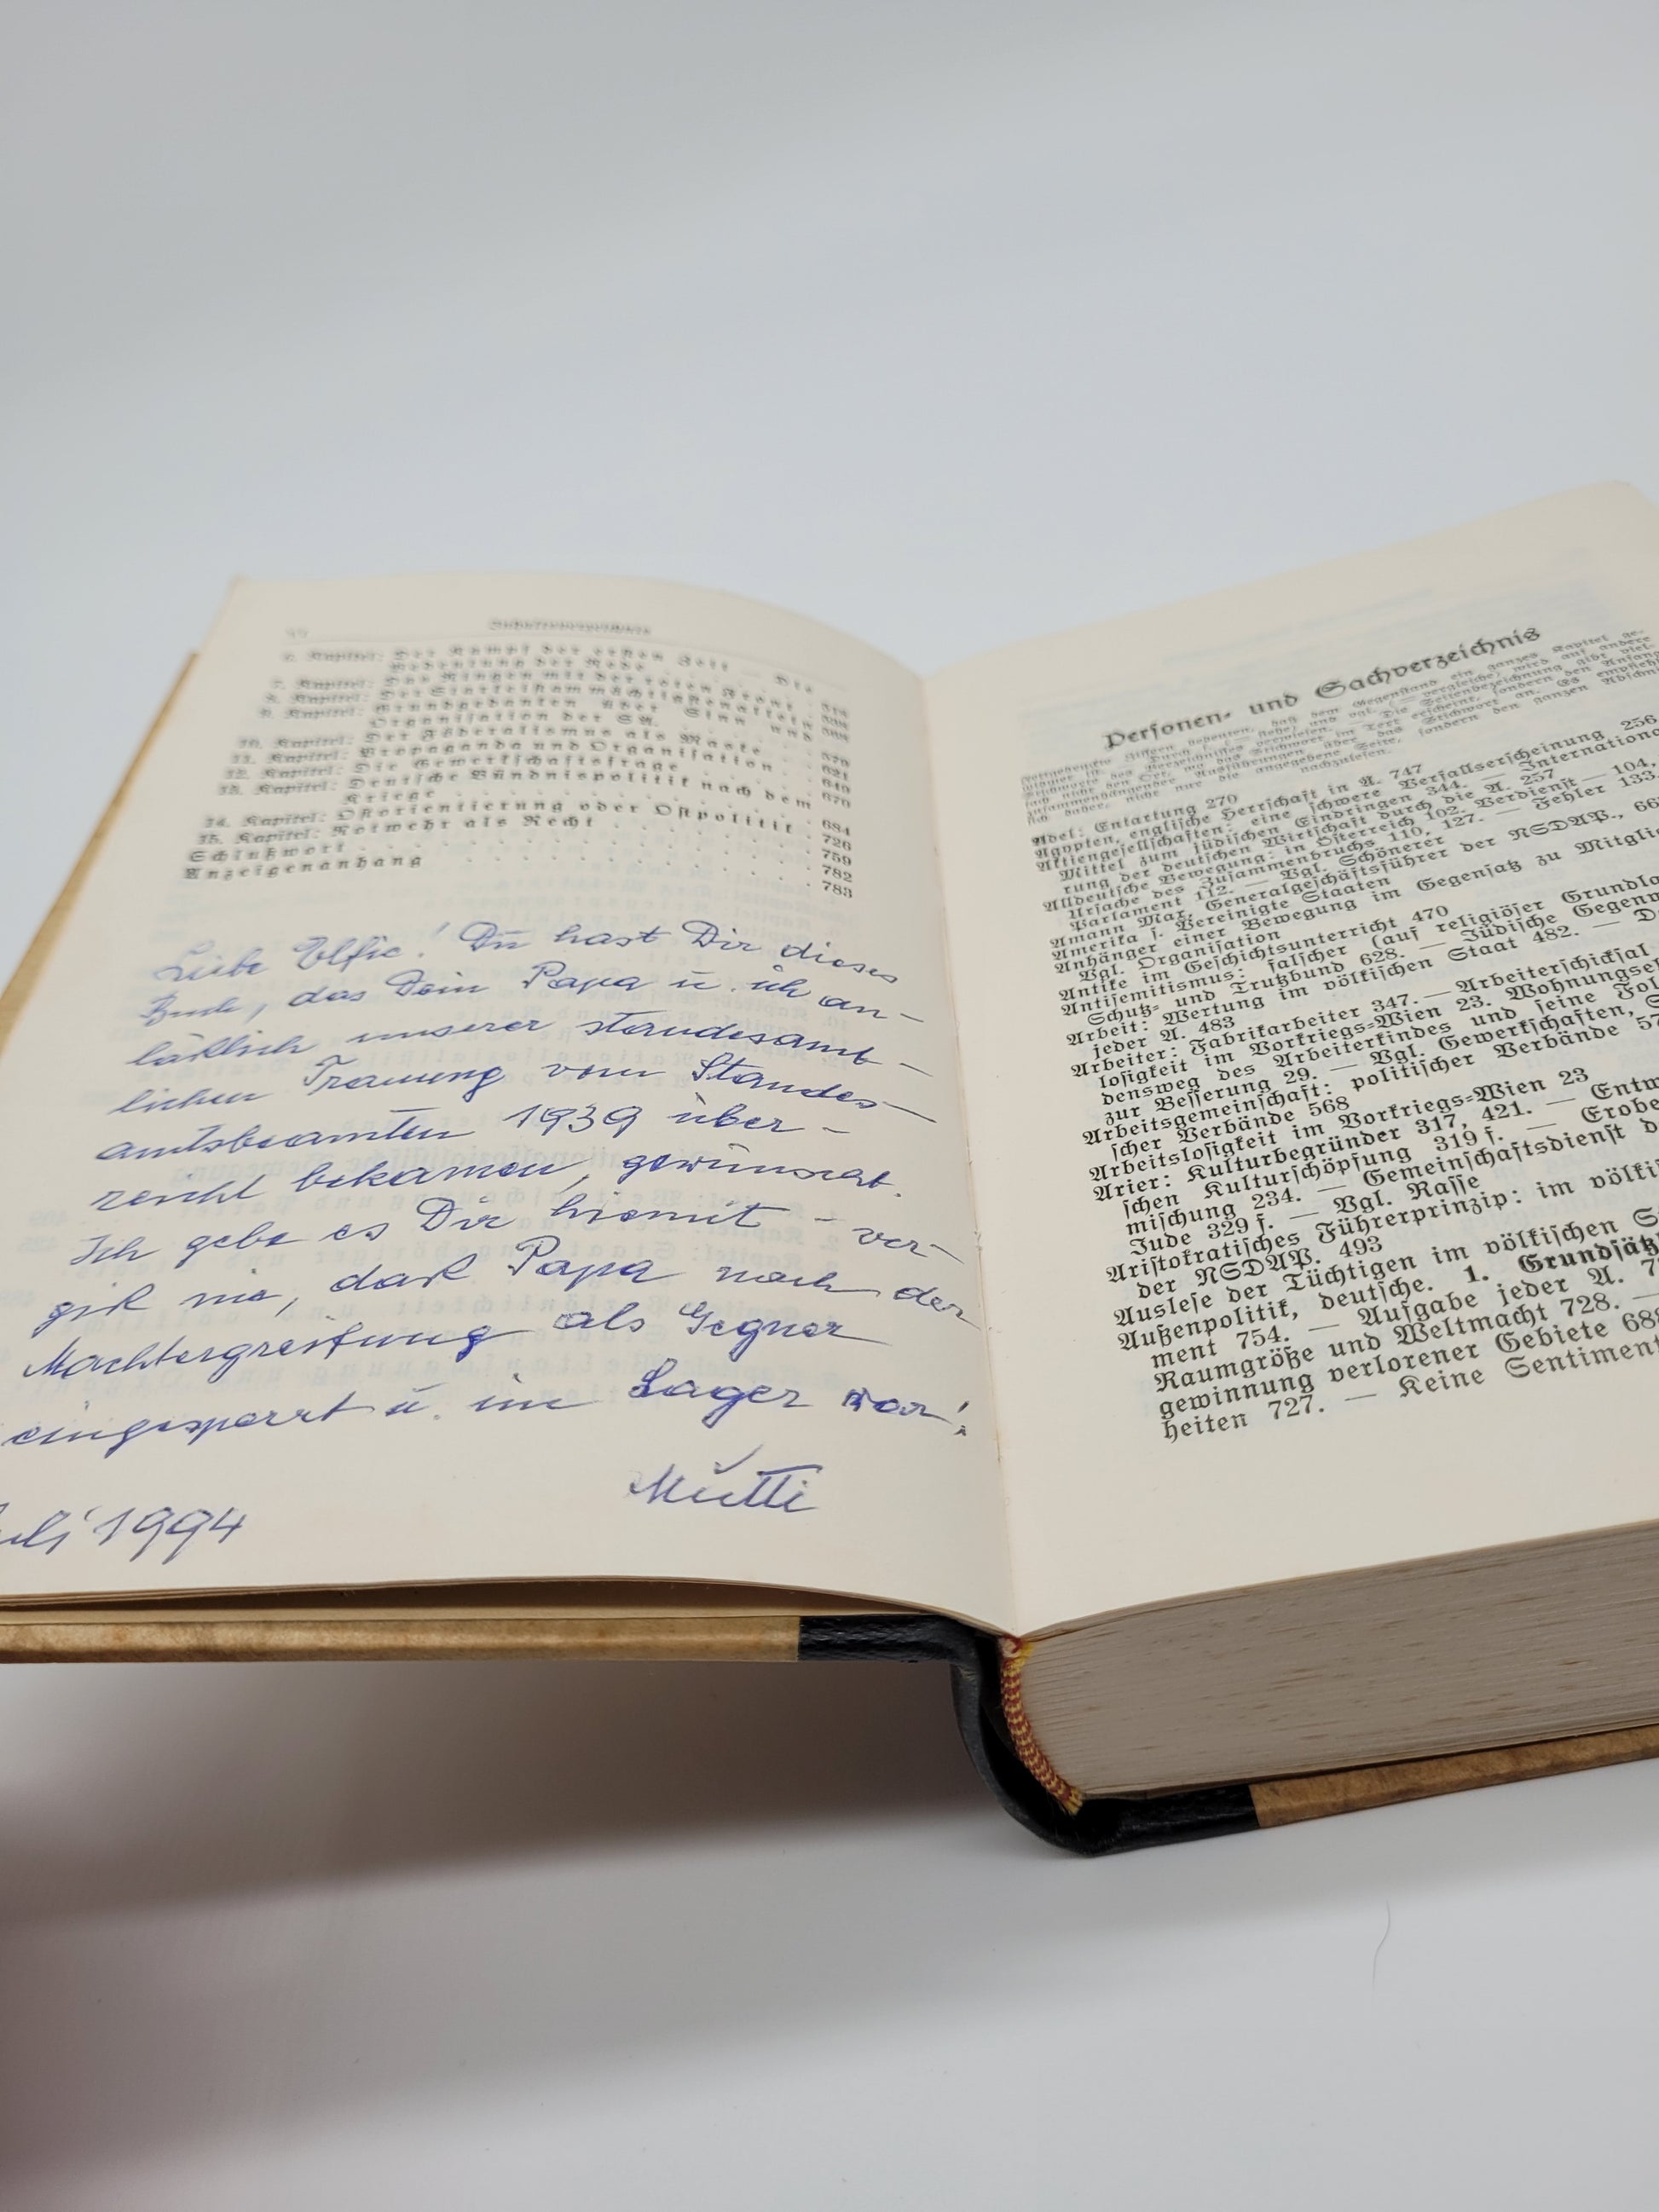 Inhaltsverzeichnis
6. Kapitel: Der Kampf der ersten Zeit — Die
Bedeutung der Rede
7. Kapitel: Das Ringen mit der roten Front
8. Kapitel: Der Starke ist am mächtigsten allein
9. Kapitel: Grundgedanken über Sinn und
Organisation der SA.
10. Kapitel: Der Föderalismus als Maske . . 621
11. Kapitel: Propaganda und Organisation . . 649
12. Kapitel: Die Gewerkschaftsfrage . . . 670
13. Kapitel: Deutsche Bündnispolitik nach dem
Kriege . . . 684
14. Kapitel: Ostorientierung oder Ostpolitik . 726
15. Kapitel: Notwehr als Recht . . . 759
Schlußwort . . . 782
Anzeigenanhang . . . 783
Liebe Elfie! Du hast Dir dieses
Buch, das Dein Papa u. ich an-
läßlich unserer standesamt-
lichen Trauung vom Standes-
amtsbeamten 1939 über-
reicht bekamen, gewünscht.
Ich gebe es Dir hiemit - ver-
giß nie, daß Papa nach der
Machtergreifung als Gegner
eingesperrt u. im Lager war!
Mutti
Juli 1994
Personen- und Sachverzeichnis
Adel: Entartung 270
Ägypten, englische Herrschaft in Ä. 747
Aktiengesellschaften: eine schwere Verfallserscheinung 256
Mittel zum jüdischen Eindringen 344. — Internationa
rung der deutschen Wirtschaft durch die A. 257
Alldeutsche Bewegung: in Österreich 102. Verdienst — 104,
Ursache des Zusammenbruchs 110, 127. — Fehler 133,
Parlament 112. — Vgl. Schönerer
Amann Max, Generalgeschäftsführer der NSDAP., 66
Amerika s. Vereinigte Staaten
Anhänger einer Bewegung im Gegensatz zu Mitglie
Vgl. Organisation
Antike im Geschichtsunterricht 470
Antisemitismus: falscher (auf religiöser Grundla
Schutz- und Trutzbund 628. — Jüdische Gegenw
Arbeit: Wertung im völkischen Staat 482. — D
jeder A. 483
Arbeiter: Fabrikarbeiter 347. — Arbeiterschicksal
losigkeit im Vorkriegs-Wien 23. Wohnungsel
densweg des Arbeiterkindes und seine Fol
zur Besserung 29. — Vgl. Gewerkschaften, S
Arbeitsgemeinschaft: politischer Verbände 57
scher Verbände 568
Arbeitslosigkeit im Vorkriegs-Wien 23
Arier: Kulturbegründer 317, 421. — Entw
schen Kulturschöpfung 319 f. — Erobe
mischung 234. — Gemeinschaftsdienst d
Jude 329 f. — Vgl. Rasse
Aristokratisches Führerprinzip: im völki
der NSDAP. 493
Auslese der Tüchtigen im völkischen S
Außenpolitik, deutsche. 1. Grundsätz
ment 754. — Aufgabe jeder A. 7
Raumgröße und Weltmacht 728. —
gewinnung verlorener Gebiete 688
heiten 727. — Keine Sentiment